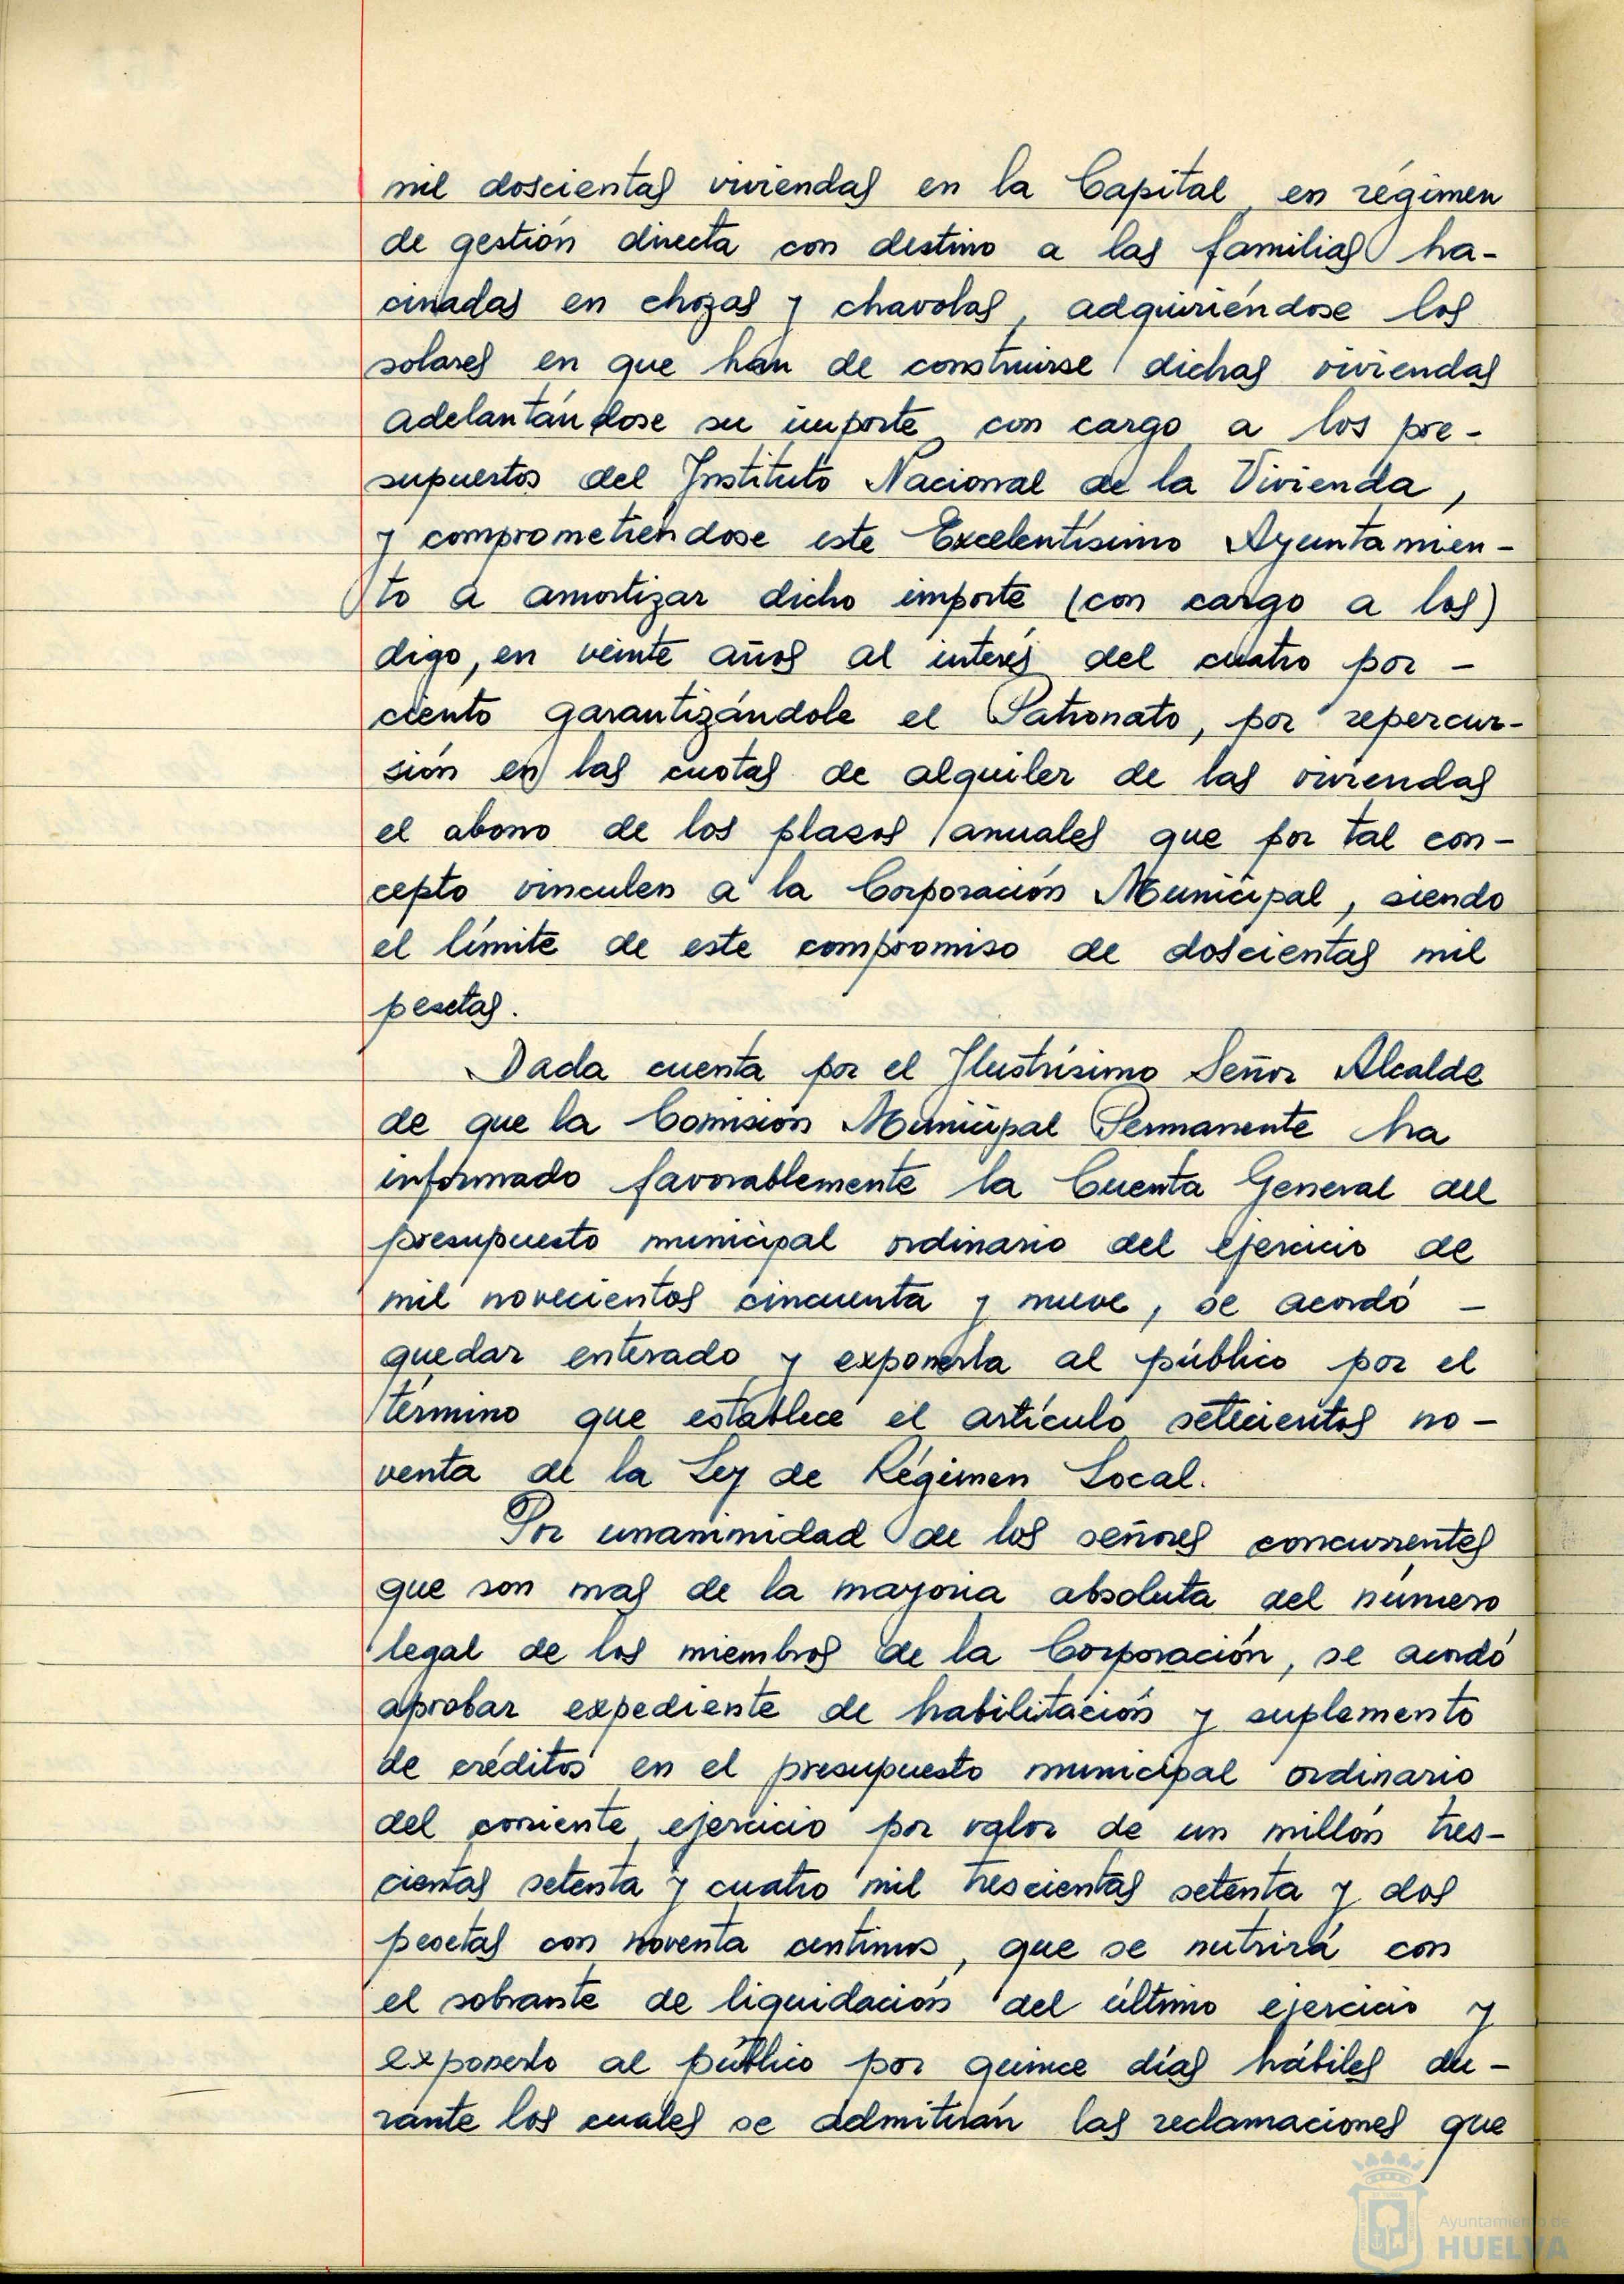 mil doscientas viviendas en la Capital, en régimen
de gestión directa con destino a las familias ha-
cinadas en chozas y chavolas, adquiriéndose los
solares en que han de construirse dichas viviendas
adelantándose su importe, con cargo a los pre-
supuestos del Instituto Nacional de la Vivienda,
y comprometiéndose este Excelentísimo Ayuntamien-
to a amortizar dicho importe (con cargo a los)
digo, en veinte años al interés del cuatro por -
ciento garantizándole el Patronato, por repercur-
sión en las cuotas de alquiler de las viviendas
el abono de los plazos anuales que por tal con-
cepto vinculen a la Corporación Municipal, siendo
el límite de este compromiso de doscientas mil
pesetas.
Dada cuenta por el Ilustrísimo Señor Alcalde
de que la Comisión Municipal Permanente ha
informado favorablemente la Cuenta General del
presupuesto municipal ordinario del ejercicio de
mil novecientos cincuenta y nueve, se acordó -
quedar enterado y exponerla al público por el
término que establece el artículo setecientos no-
venta de la Ley de Régimen Local.
Por unanimidad de los señores concurrentes
que son mas de la mayoria absoluta del número
legal de los miembros de la Corporación, se acordó
aprobar expediente de habilitación y suplemento
de créditos en el presupuesto municipal ordinario
del corriente ejercicio por valor de un millón tres-
cientas setenta y cuatro mil trescientas setenta y dos
pesetas con noventa centimos, que se nutrirá con
el sobrante de liquidación del último ejercicio y
exponerlo al público por quince días hábiles du-
rante los cuales se admitirán las reclamaciones que
Ayuntamiento de
HUELVA